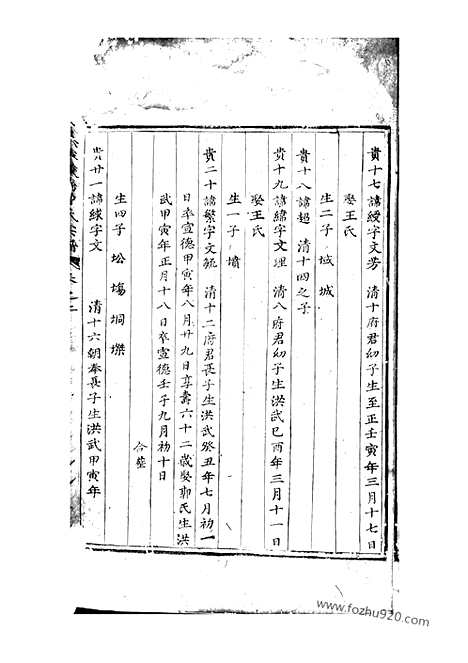 貴十七諱綬字文芳 清十府君幼子生至正壬寅年三月十七日
娶王氏
生二子 域 城
貴十八諱超 清十四之子
貴十九諱緯字文理 清八府君幼子生洪武己酉年三月十一日
娶王氏
生一子 墳
貴二十諱繁字文 清十二府君長子生洪武癸丑年七月初一
日卒宣德甲寅年八月廿九日享壽六十二歲娶郭氏生洪
武甲寅年正月十八日卒宣德壬子九月初十日
合葬
生四子 坋 塲 坰 墚
貴廿一諱絿字文 清十六朝奉長子生洪武甲寅年
www.fozhu920.com